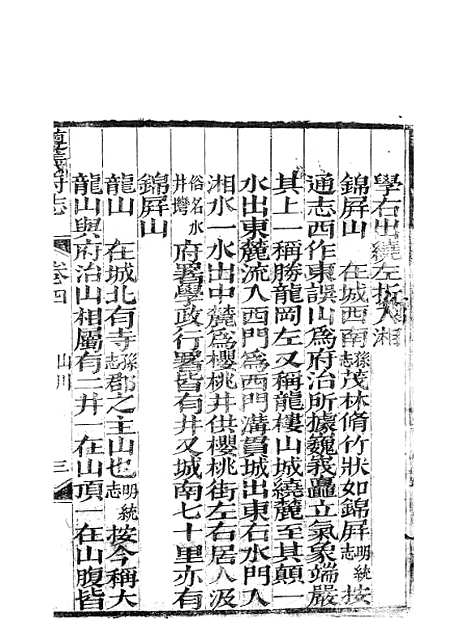 學右出繞左折入湘
錦屏山 在城西南孫志茂林脩竹狀如錦屏明統志按
通志西作東誤山爲府治所據巍峩矗立氣象端嚴
其上一稱勝龍岡左又稱龍樓山城繞麓至其顛一
水出東麓流入西門爲西門溝貫城出東右水門入
湘水一水出中麓爲櫻桃井供櫻桃街左右居人汲
俗名水井灣府署學政行署皆有井又城南七十里亦有
錦屏山
龍山 在城北有寺孫志郡之主山也明統志按今稱大
龍山與府治山相屬有二井一在山頂一在山腹皆
遵義府志 卷四 山川 三